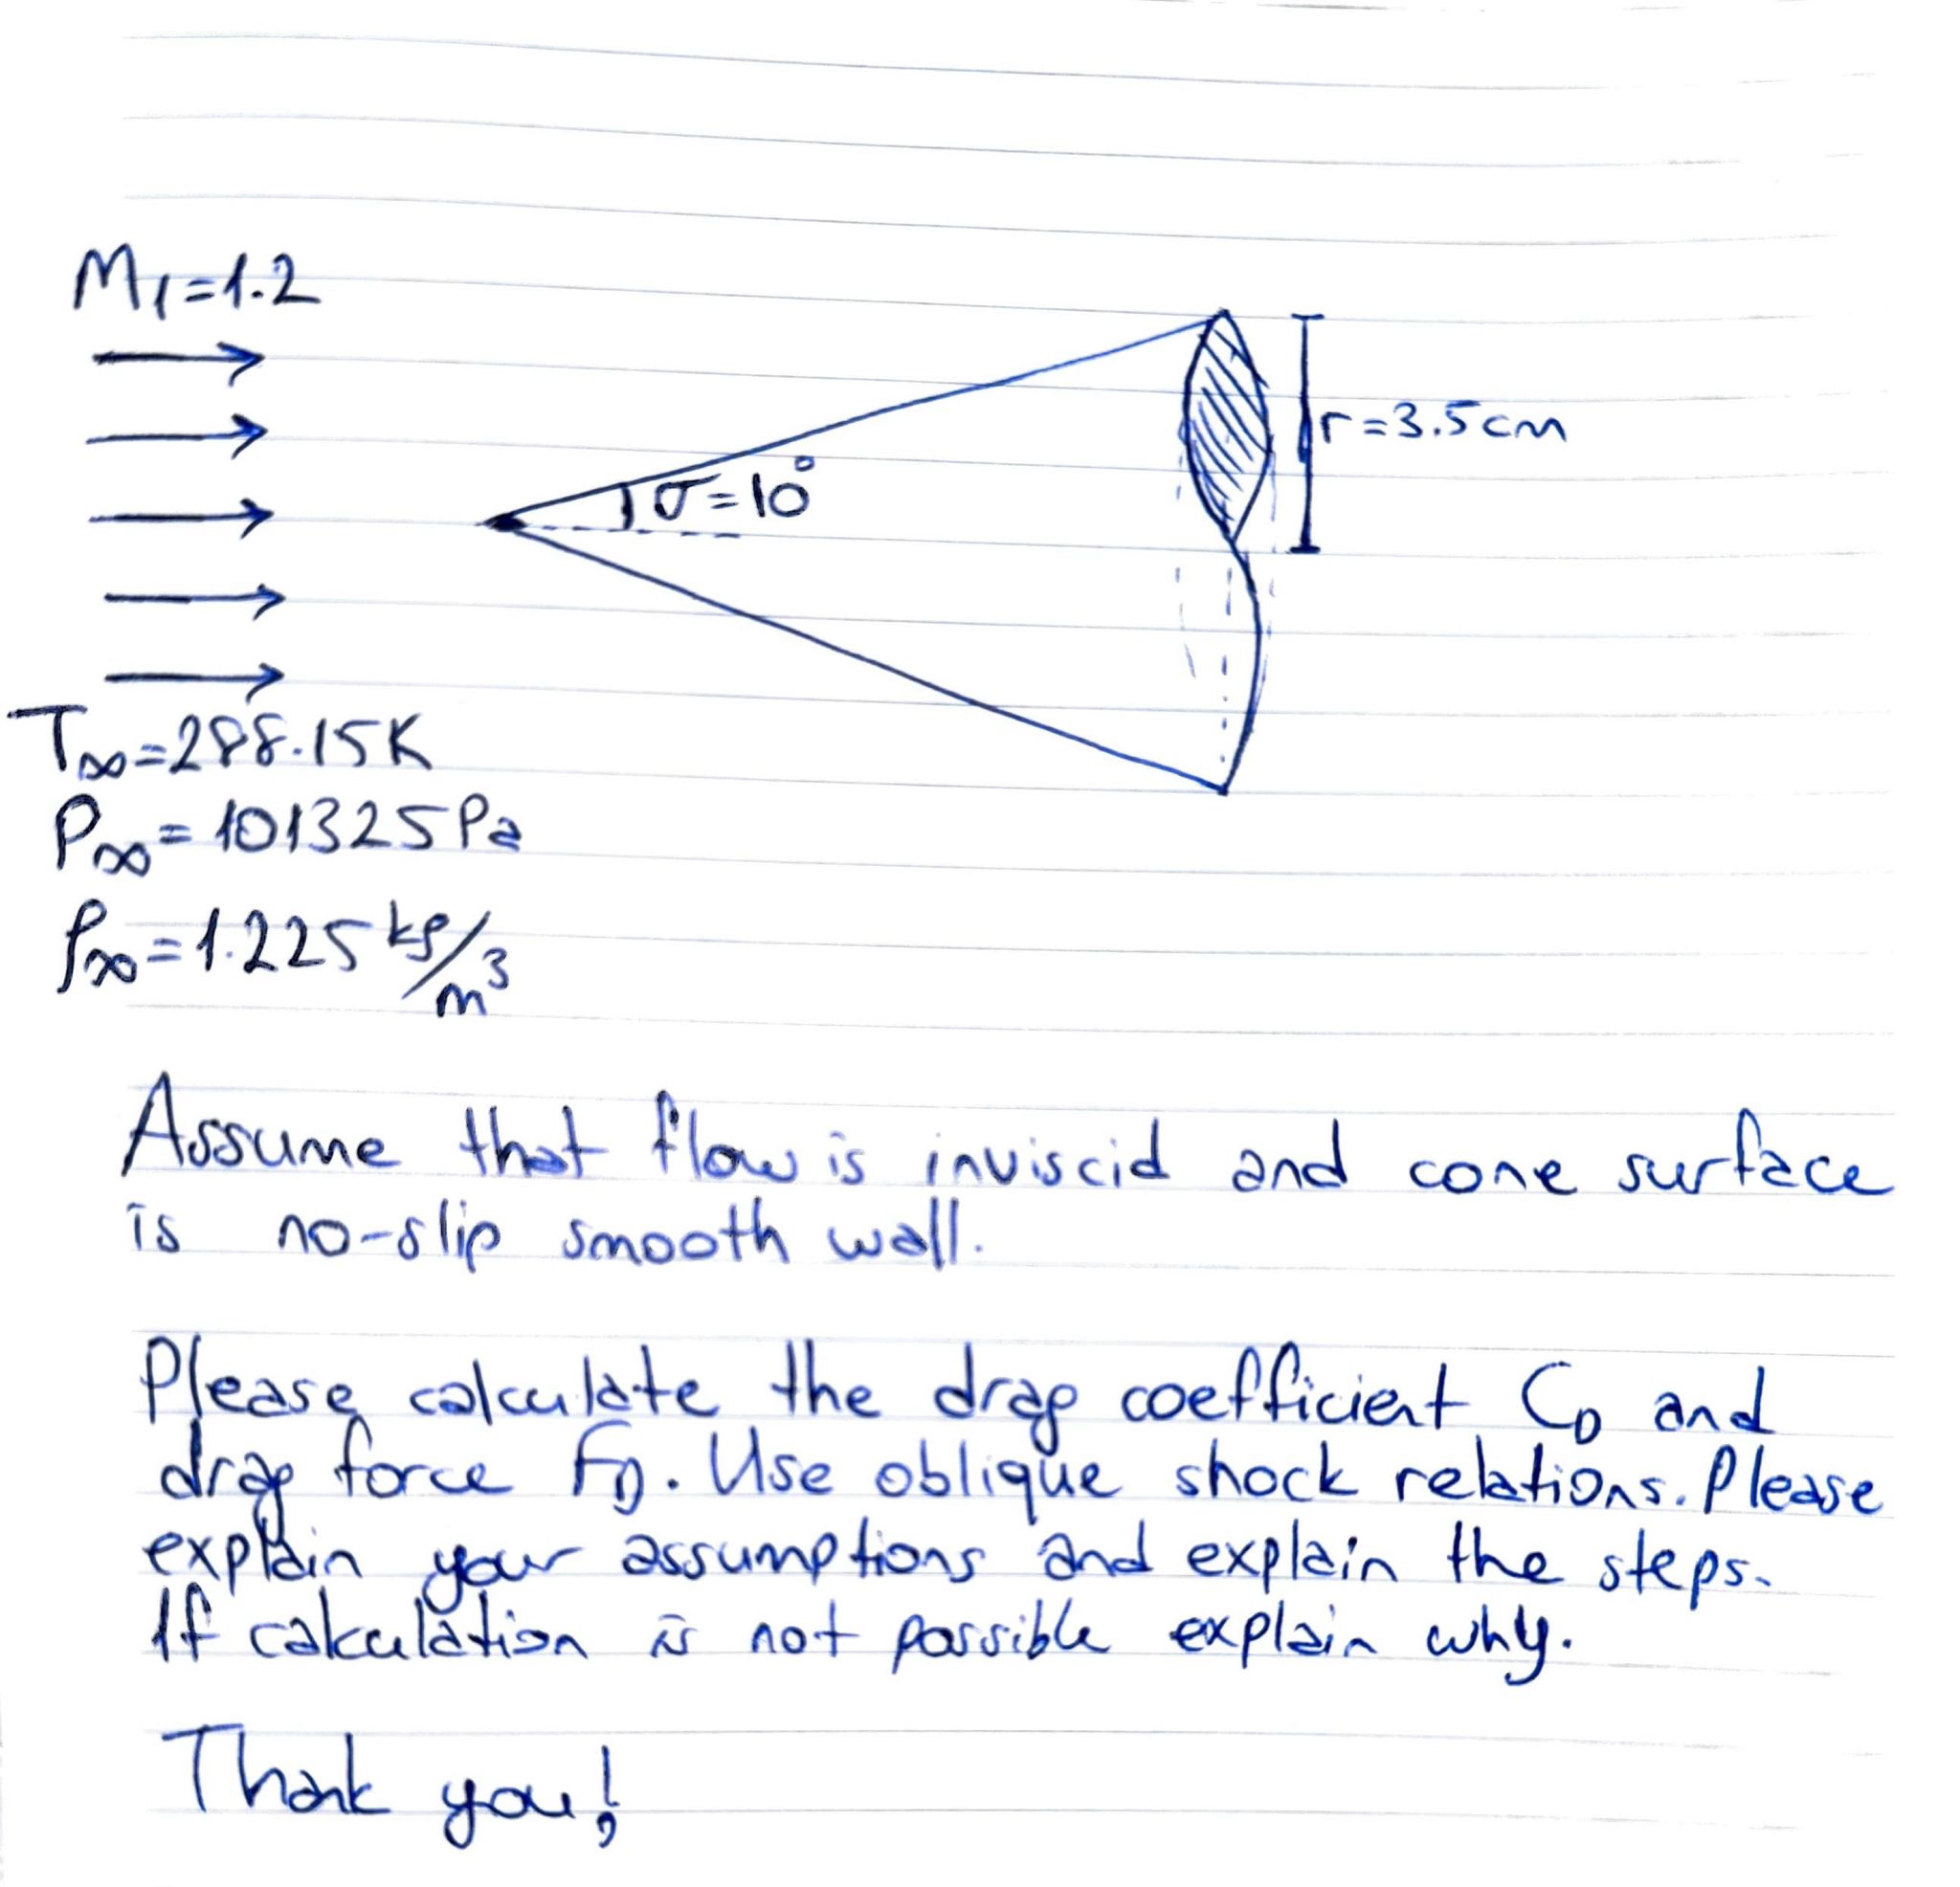 M₁=1.2
σ=10°
r=3.5cm
T∞=288.15K
P∞=101325Pa
ρ∞=1.225 kg/m³
Assume that flow is inviscid and cone surface
is no-slip smooth wall.
Please calculate the drag coefficient C_D and
drag force F_D. Use oblique shock relations. Please
explain your assumptions and explain the steps.
If calculation is not possible explain why.
Thank you!